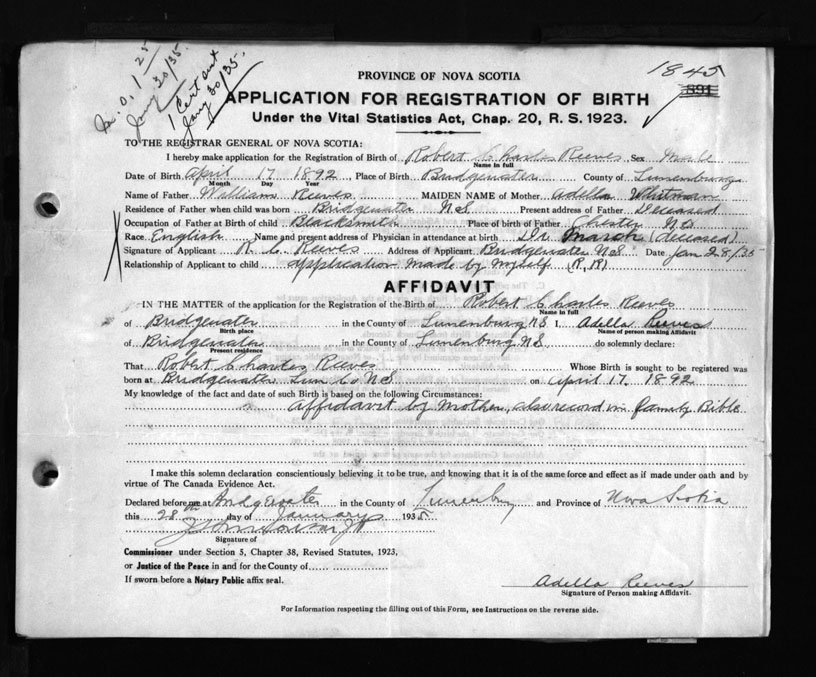 M.O. 1 25
Jany 30/35.
1 Cert out
Jany 30/35.
1845
891
PROVINCE OF NOVA SCOTIA
APPLICATION FOR REGISTRATION OF BIRTH
Under the Vital Statistics Act, Chap. 20, R. S. 1923.
TO THE REGISTRAR GENERAL OF NOVA SCOTIA:
I hereby make application for the Registration of Birth of Robert Charles Reeves Sex Male
Name in full
Date of Birth April 17 1892 Place of Birth Bridgewater County of Lunenburg
Month Day Year
Name of Father William Reeves MAIDEN NAME of Mother Adella Whitman
Residence of Father when child was born Bridgewater N S Present address of Father Deceased
Occupation of Father at Birth of child Blacksmith Place of birth of Father Chester N.S
Race English Name and present address of Physician in attendance at birth Dr March (deceased)
Signature of Applicant R. C. Reeves Address of Applicant Bridgewater N S Date Jan 28/35
Relationship of Applicant to child application made by myself (R, R)
AFFIDAVIT
IN THE MATTER of the application for the Registration of the Birth of Robert Charles Reeves
Name in full
of Bridgewater in the County of Lunenburg N.S I, Adella Reeves
Birth place Name of person making Affidavit
of Bridgewater in the County of Lunenburg N.S do solemnly declare:
Present residence
That Robert Charles Reeves Whose Birth is sought to be registered was
born at Bridgewater Lun Co N S on April 17 1892
My knowledge of the fact and date of such Birth is based on the following Circumstances:
Affidavit by Mother, also record in family Bible
I make this solemn declaration conscientiously believing it to be true, and knowing that it is of the same force and effect as if made under oath and by
virtue of The Canada Evidence Act.
Declared before me at Bridgewater in the County of Lunenburg and Province of Nova Scotia
this 28th day of January 1935
Signature of
Commissioner under Section 5, Chapter 38, Revised Statutes, 1923,
or Justice of the Peace in and for the County of
If sworn before a Notary Public affix seal.
Adella Reeves
Signature of Person making Affidavit.
For Information respecting the filling out of this Form, see Instructions on the reverse side.